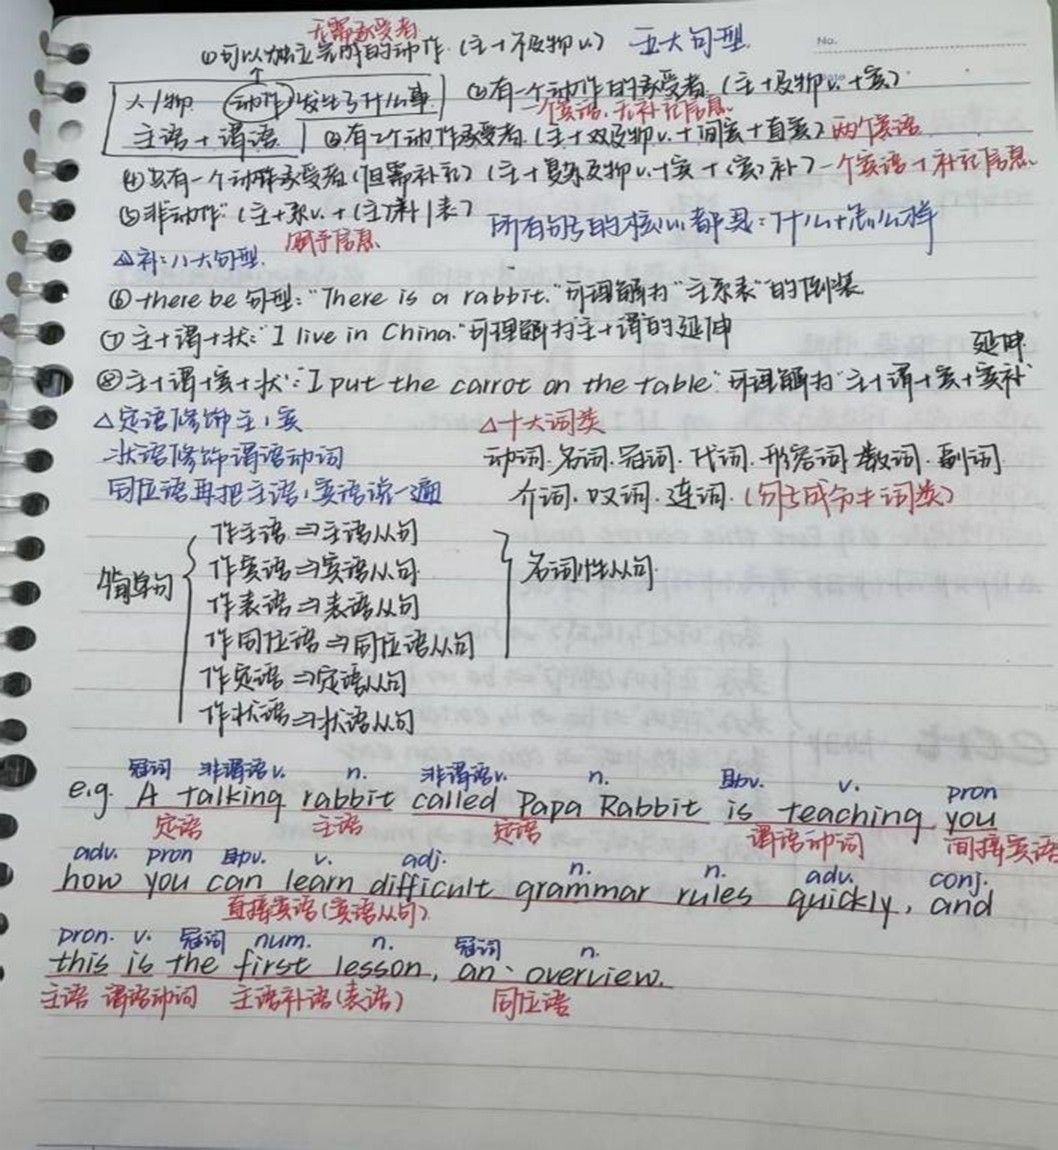 无需承受者
①可以独立完成的动作 (主+不及物v.) 五大句型
No.
人/物 动作 发生了什么事 ②有一个动作的承受者 (主+及物v.+宾)
一个宾语,无补充信息
主语+谓语 ③有2个动作承受者 (主+双及物v.+间宾+直宾) 两个宾语
④只有一个动作承受者(但需补充) (主+复杂及物v.+宾+(宾)补) 一个宾语+补充信息
⑤非"动作" (主+系v.+(主)补/表) 所有句子的核心都是:什么+怎么样
赋予信息
△补:八大句型
⑥there be 句型:"There is a rabbit."可理解为"主系表"的倒装
⑦主+谓+状:"I live in China."可理解为"主+谓"的延伸
延伸
⑧主+谓+宾+状:"I put the carrot on the table."可理解为"主+谓+宾+宾补"
△定语修饰主,宾 △十大词类
状语修饰谓语动词 动词.名词.冠词.代词.形容词.数词.副词
同位语再把主语,宾语说一遍 介词.叹词.连词.(句子成分≠词类)
简单句
作主语⇒主语从句
作宾语⇒宾语从句
作表语⇒表语从句
作同位语⇒同位语从句
名词性从句
作定语⇒定语从句
作状语⇒状语从句
冠词 非谓语v. n. 非谓语v. n. 助v. v. pron
e.g. A talking rabbit called Papa Rabbit is teaching you
定语 主语 定语 谓语动词 间接宾语
adv. pron 助v. v. adj. n. n. adv. conj.
how you can learn difficult grammar rules quickly, and
直接宾语(宾语从句)
pron. v. 冠词 num. n. 冠词 n.
this is the first lesson, an overview.
主语 谓语动词 主语补语(表语) 同位语